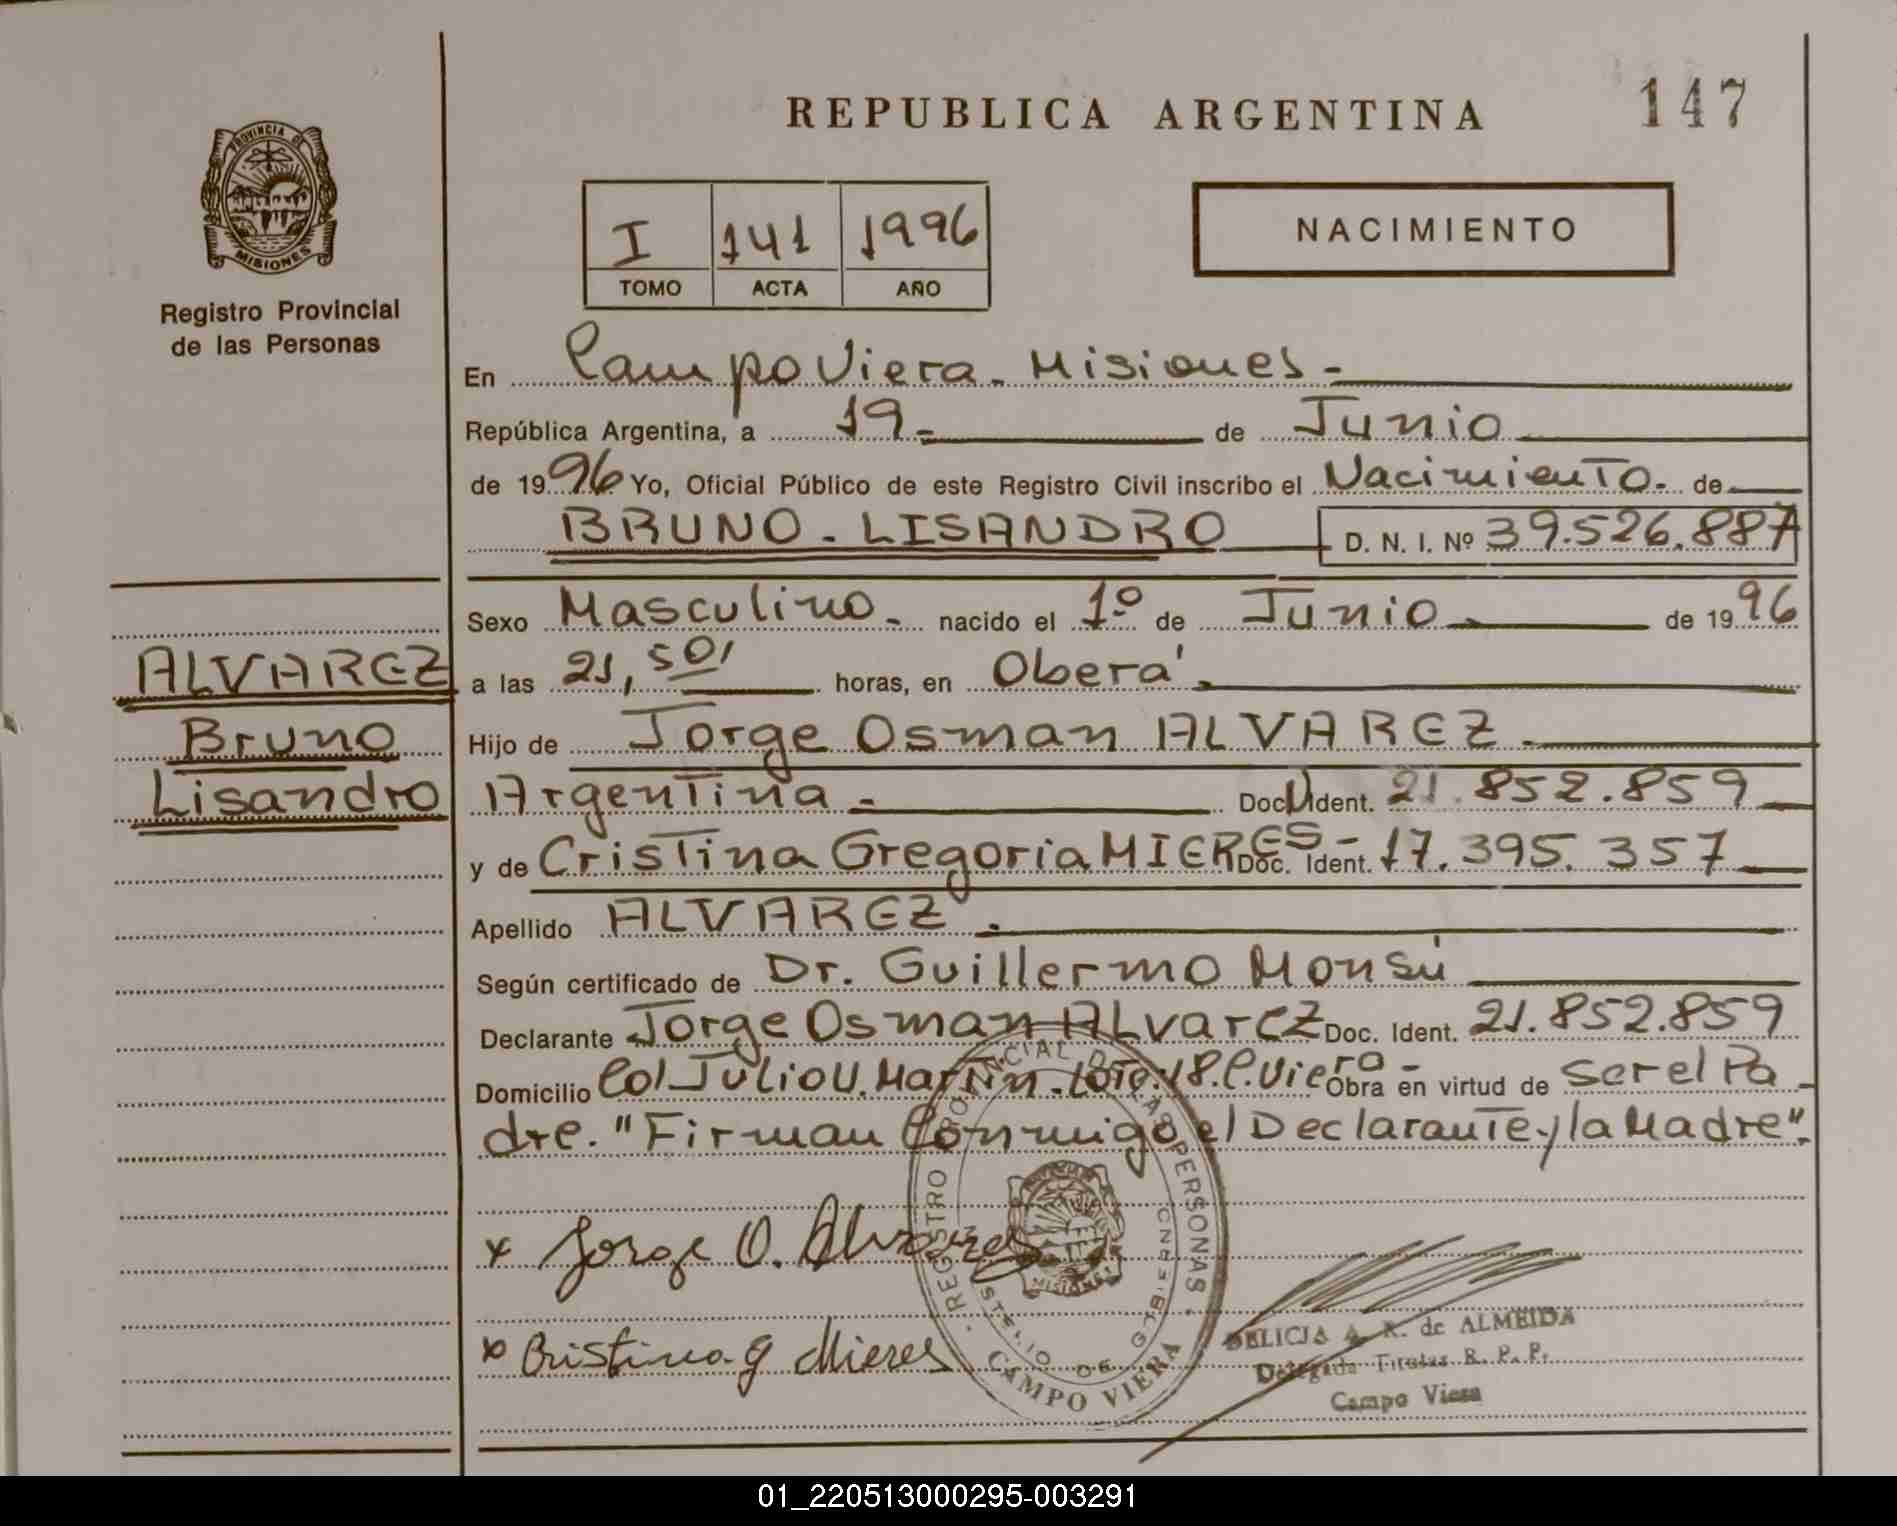 REPUBLICA ARGENTINA
147
PROVINCIA DE
MISIONES
Registro Provincial
de las Personas
I 141 1996
TOMO ACTA AÑO
NACIMIENTO
En Campo Viera - Misiones -
República Argentina, a 19 - de Junio
de 1996 Yo, Oficial Público de este Registro Civil inscribo el Nacimiento - de
BRUNO - LISANDRO D. N. I. Nº 39.526.887
Sexo Masculino - nacido el 1º de Junio - de 1996
ALVAREZ
a las 21,50, horas, en Oberá.
Bruno
Hijo de Jorge Osman ALVAREZ -
Lisandro
Argentina - Doc. Ident. 21.852.859
y de Cristina Gregoria MIERES - Doc. Ident. 17.395.357
Apellido ALVAREZ.
Según certificado de Dr. Guillermo Monsú
Declarante Jorge Osman ALvarEZ Doc. Ident. 21.852.859
Domicilio Col Julio U. Martin - Lote 18. C. Viera - Obra en virtud de ser el Pa -
dre. "Firman Conmigo el Declarante y la Madre".
REGISTRO PROVINCIAL DE LAS PERSONAS
MISIONES
CAMPO VIERA
x Jorge O. Alvarez
x Cristina G Mieres
DELICIA A. R. de ALMEIDA
Delegada Titular R. P. P.
Campo Viera
01_220513000295-003291